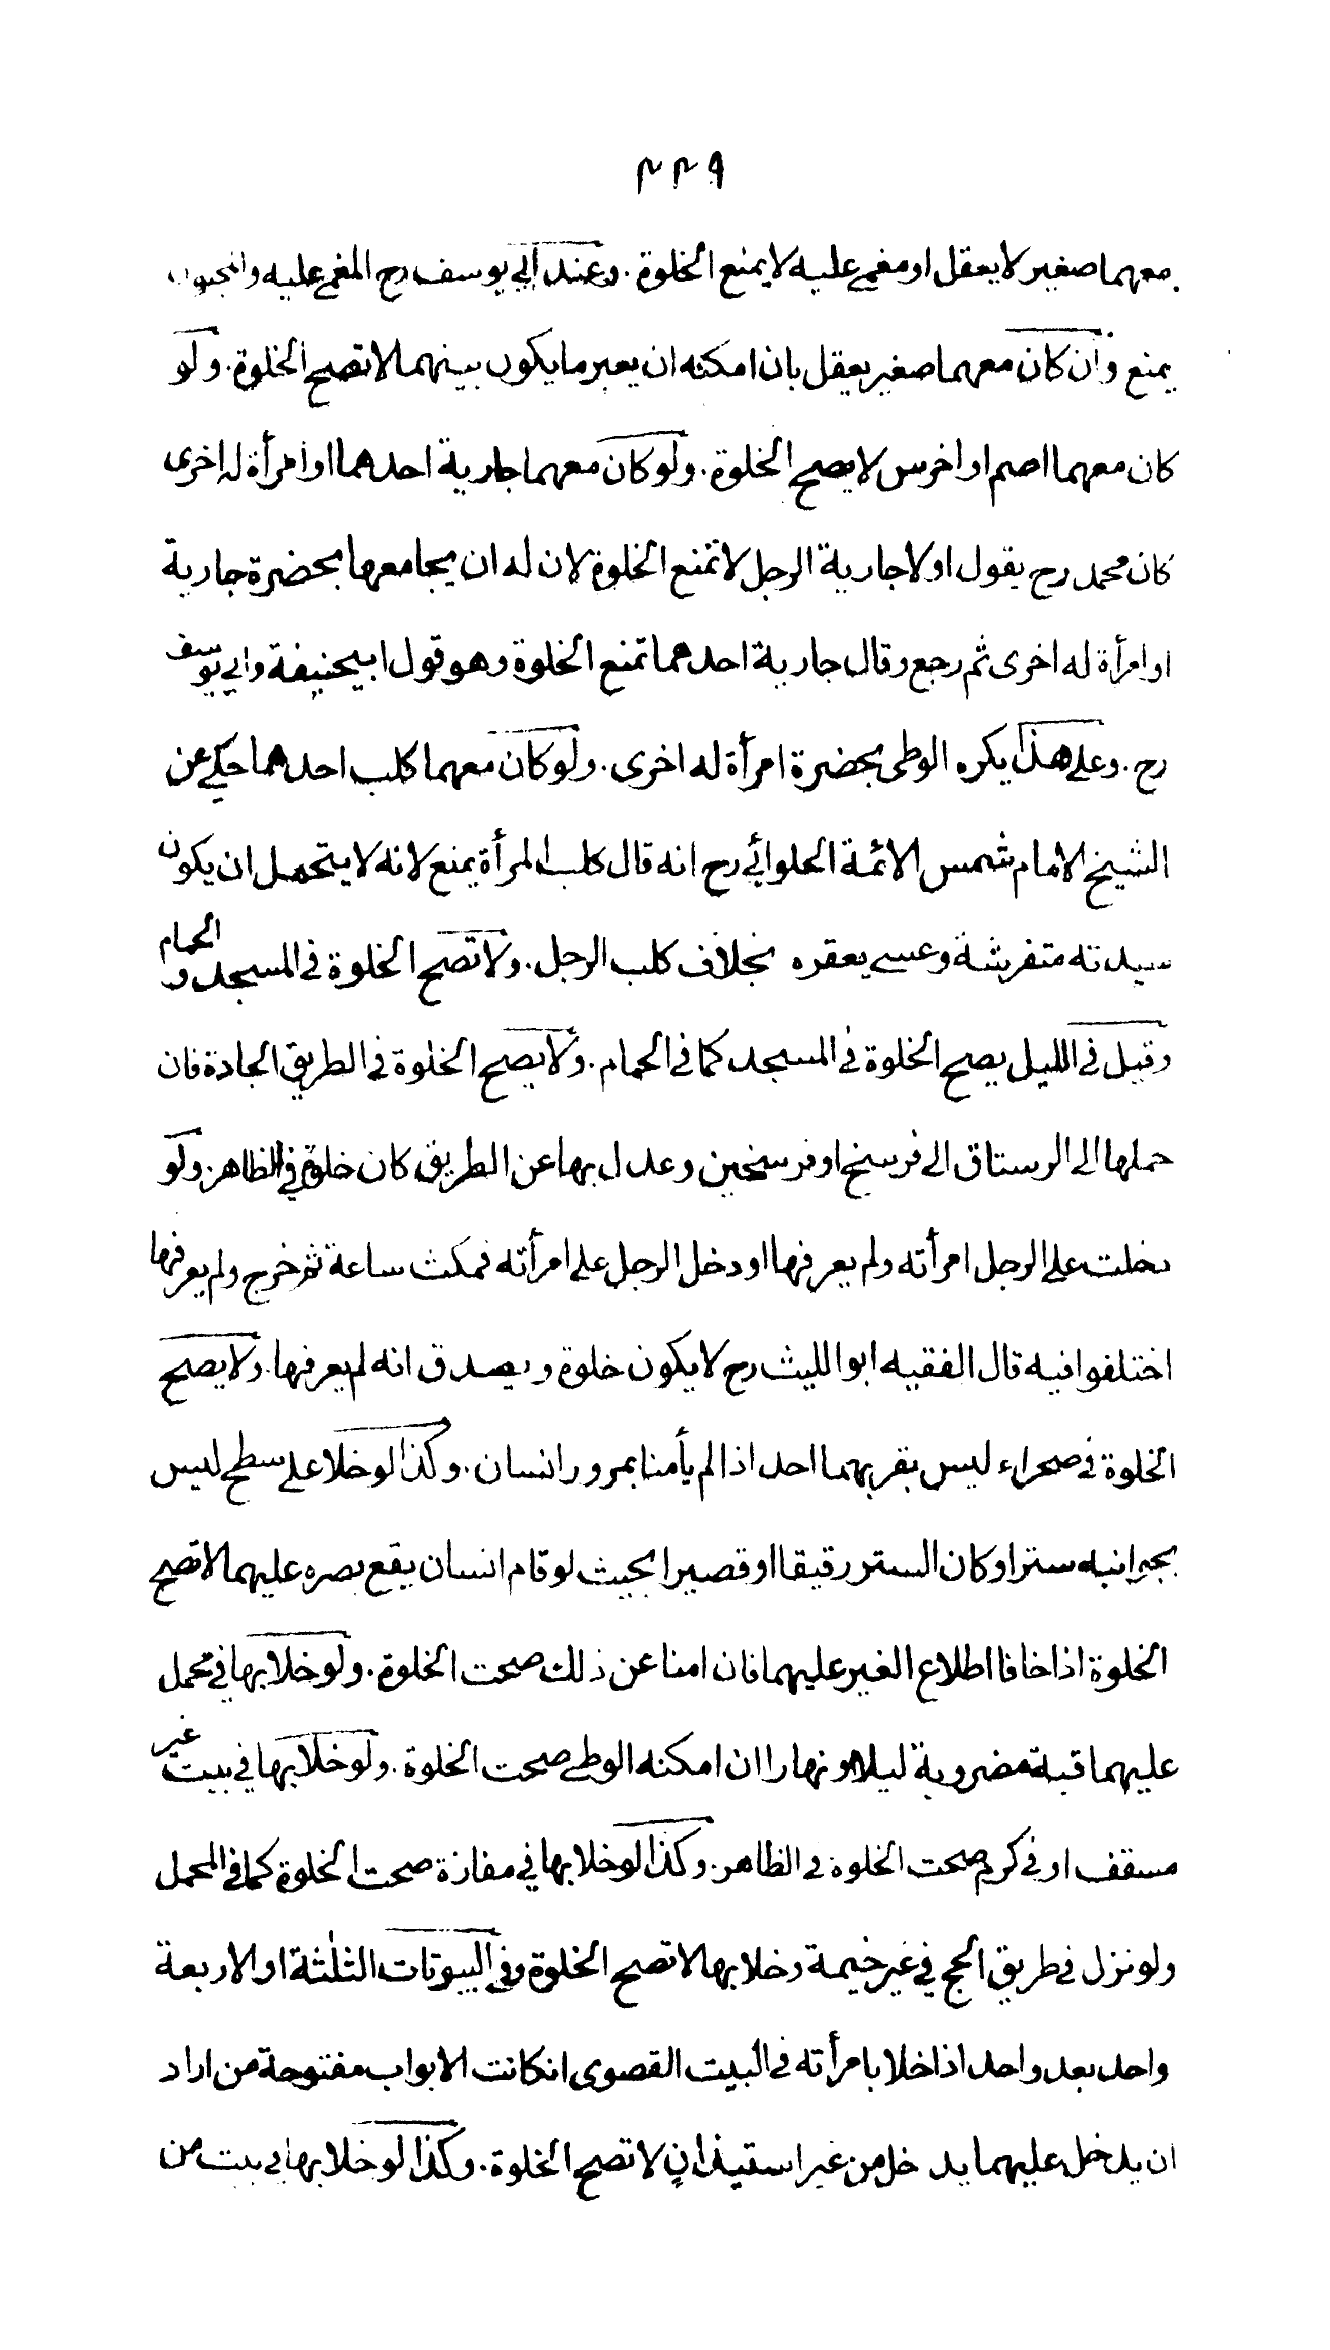 ۴۴۹
معهما صغير لا يعقل او مغمى عليه لا يمنع الخلوة . وعند ابي يوسف رح المغمى عليه والمجنون
يمنع وان كان معهما صغير يعقل بان امكنه ان يعبر ما يكون بينهما لا تصح الخلوة . ولو
كان معهما اصم او اخرس لا يصح الخلوة . ولو كان معهما جارية احدهما او امرأة له اخرى
كان محمد رح يقول اولا جارية الرجل لا تمنع الخلوة لان له ان يجامعها بحضرة جارية
او امرأة له اخرى ثم رجع وقال جارية احدهما تمنع الخلوة وهو قول ابيحنيفة وابي يوسف
رح . وعلى هذا يكره الوطى بحضرة امرأة له اخرى . ولو كان معهما كلب احدهما حكي عن
الشيخ الامام شمس الائمة الحلوائي رح انه قال كلب المرأة يمنع لانه لا يتحمل ان يكون
سيدته متفرشة وعسى يعقره بخلاف كلب الرجل . ولا تصح الخلوة في المسجد و الحمام
وقيل في الليل يصح الخلوة في المسجد كما في الحمام . ولا يصح الخلوة في الطريق الجادة فان
حملها الى الرستاق الى فرسخ او فرسخين وعدل بها عن الطريق كان خلوة في الظاهر . ولو
دخلت على الرجل امرأته ولم يعرفها او دخل الرجل على امرأته فمكث ساعة ثم خرج ولم يعرفها
اختلفوا فيه قال الفقيه ابو الليث رح لا يكون خلوة ويصدق انه لم يعرفها . ولا يصح
الخلوة في صحراء ليس بقربهما احد اذا لم يأمنا بمرور انسان . وكذا لو خلا على سطح ليس
بجوانبه ستر او كان الستر رقيقا او قصيرا بحيث لو قام انسان يقع بصره عليهما لا تصح
الخلوة اذا خافا اطلاع الغير عليهما فان امنا عن ذلك صحت الخلوة . ولو خلا بها في محمل
عليهما قبة مضروبة ليلا او نهارا ان امكنه الوطى صحت الخلوة . ولو خلا بها في بيت غير
مسقف او في كرم صحت الخلوة في الظاهر . وكذا لو خلا بها في مفازة صحت الخلوة كما في المحمل
ولو نزل في طريق الحج في غير خيمة وخلا بها لا تصح الخلوة وفي البيوتات الثلثة او الاربعة
واحد بعد واحد اذا خلا بامرأته في البيت القصوى انكانت الابواب مفتوحة من اراد
ان يدخل عليهما يدخل من غير استيذان لا تصح الخلوة . وكذا لو خلا بها في بيت من